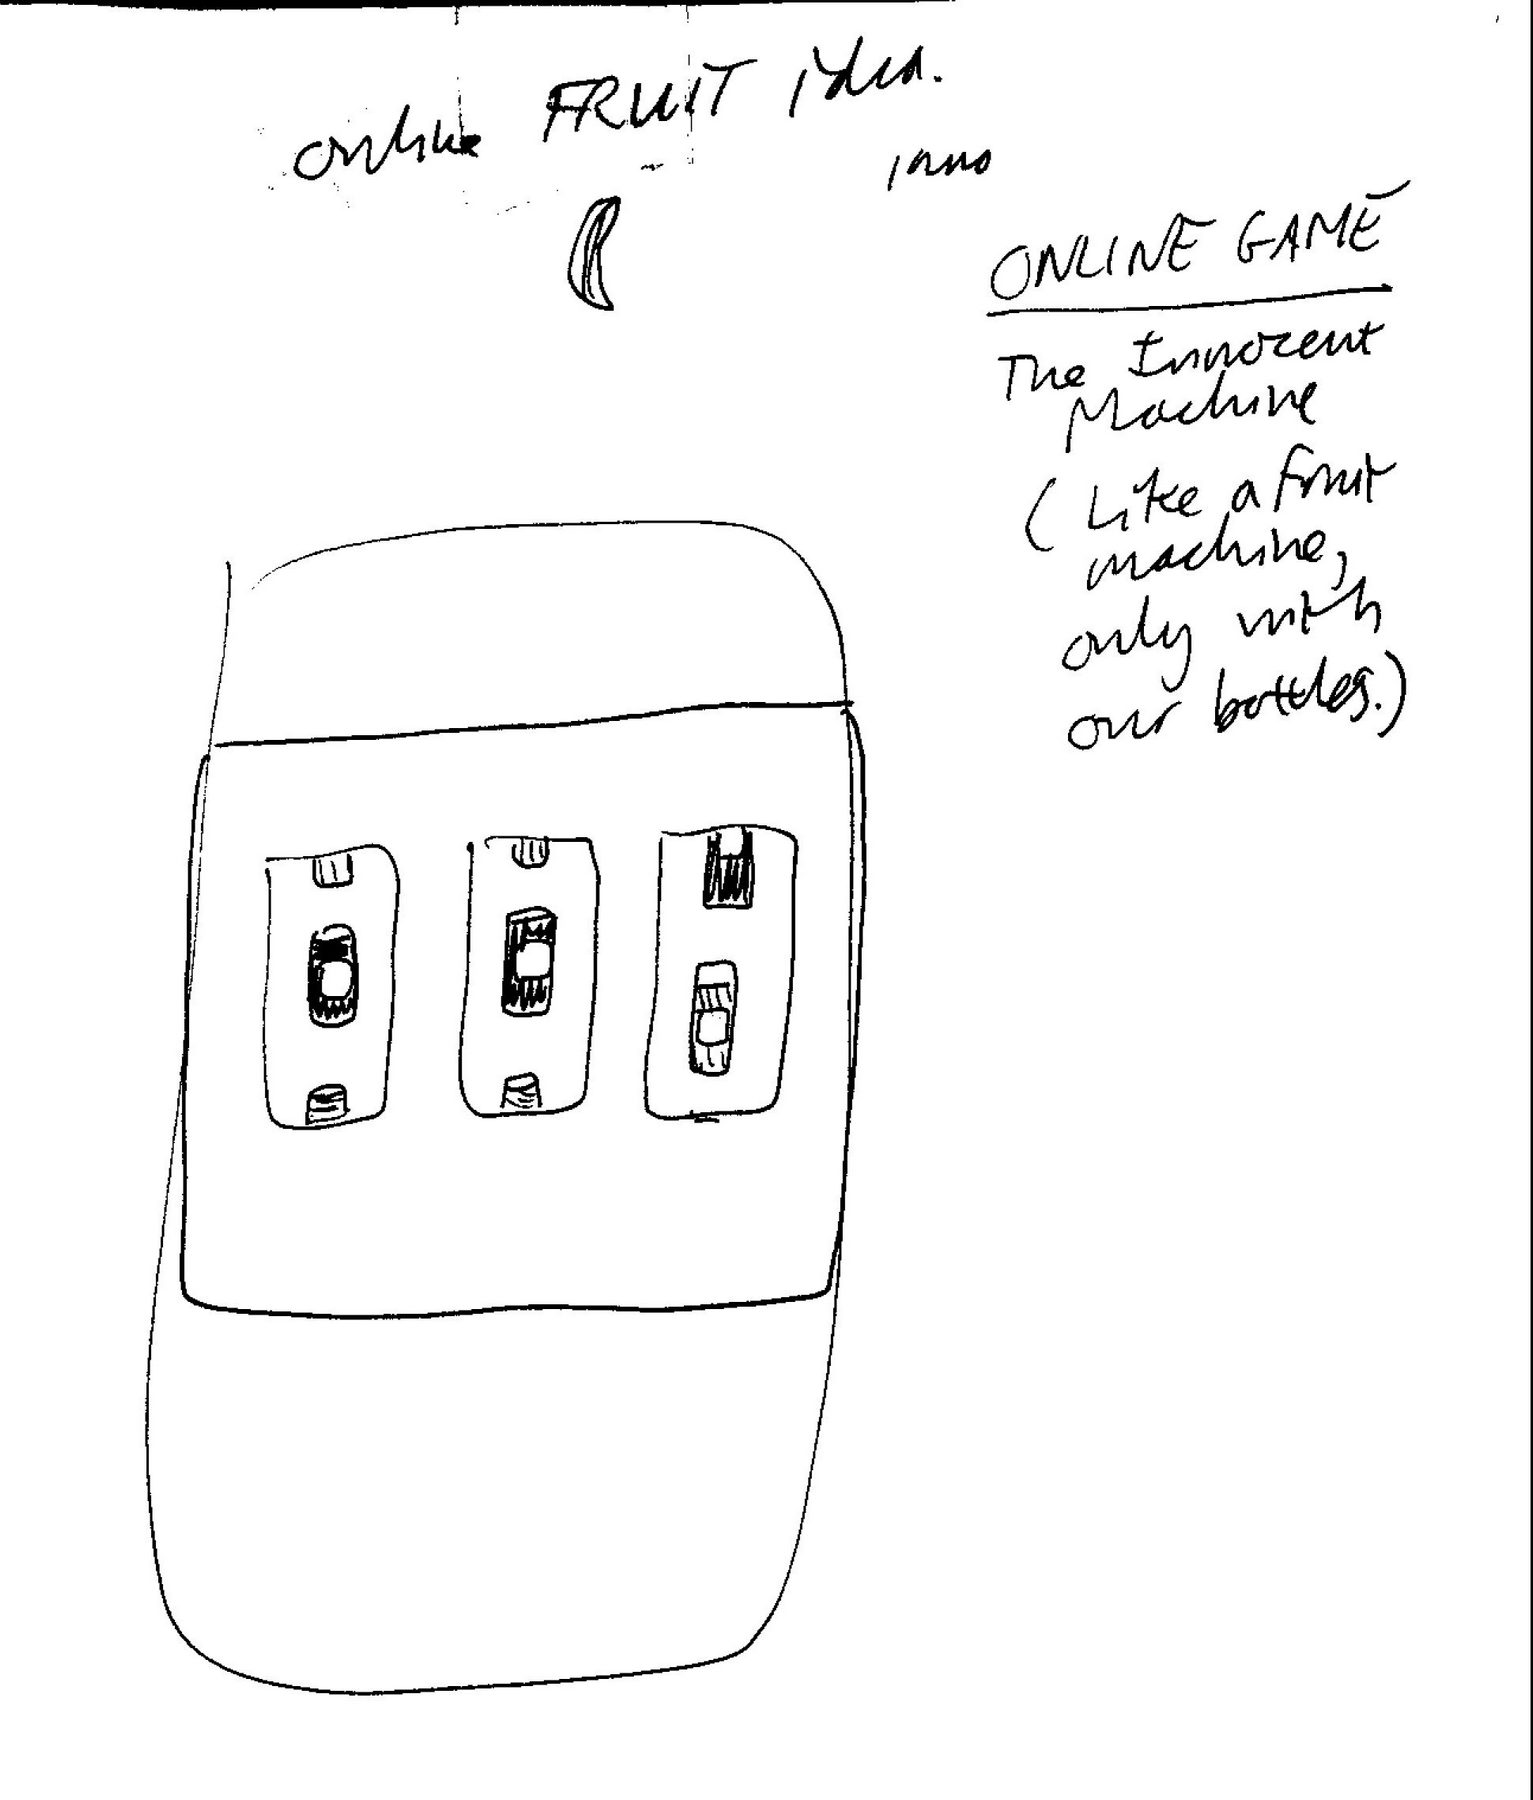 online FRUIT idea.
inno
ONLINE GAME
The Innocent
Machine
(Like a fruit
machine,
only with
our bottles.)